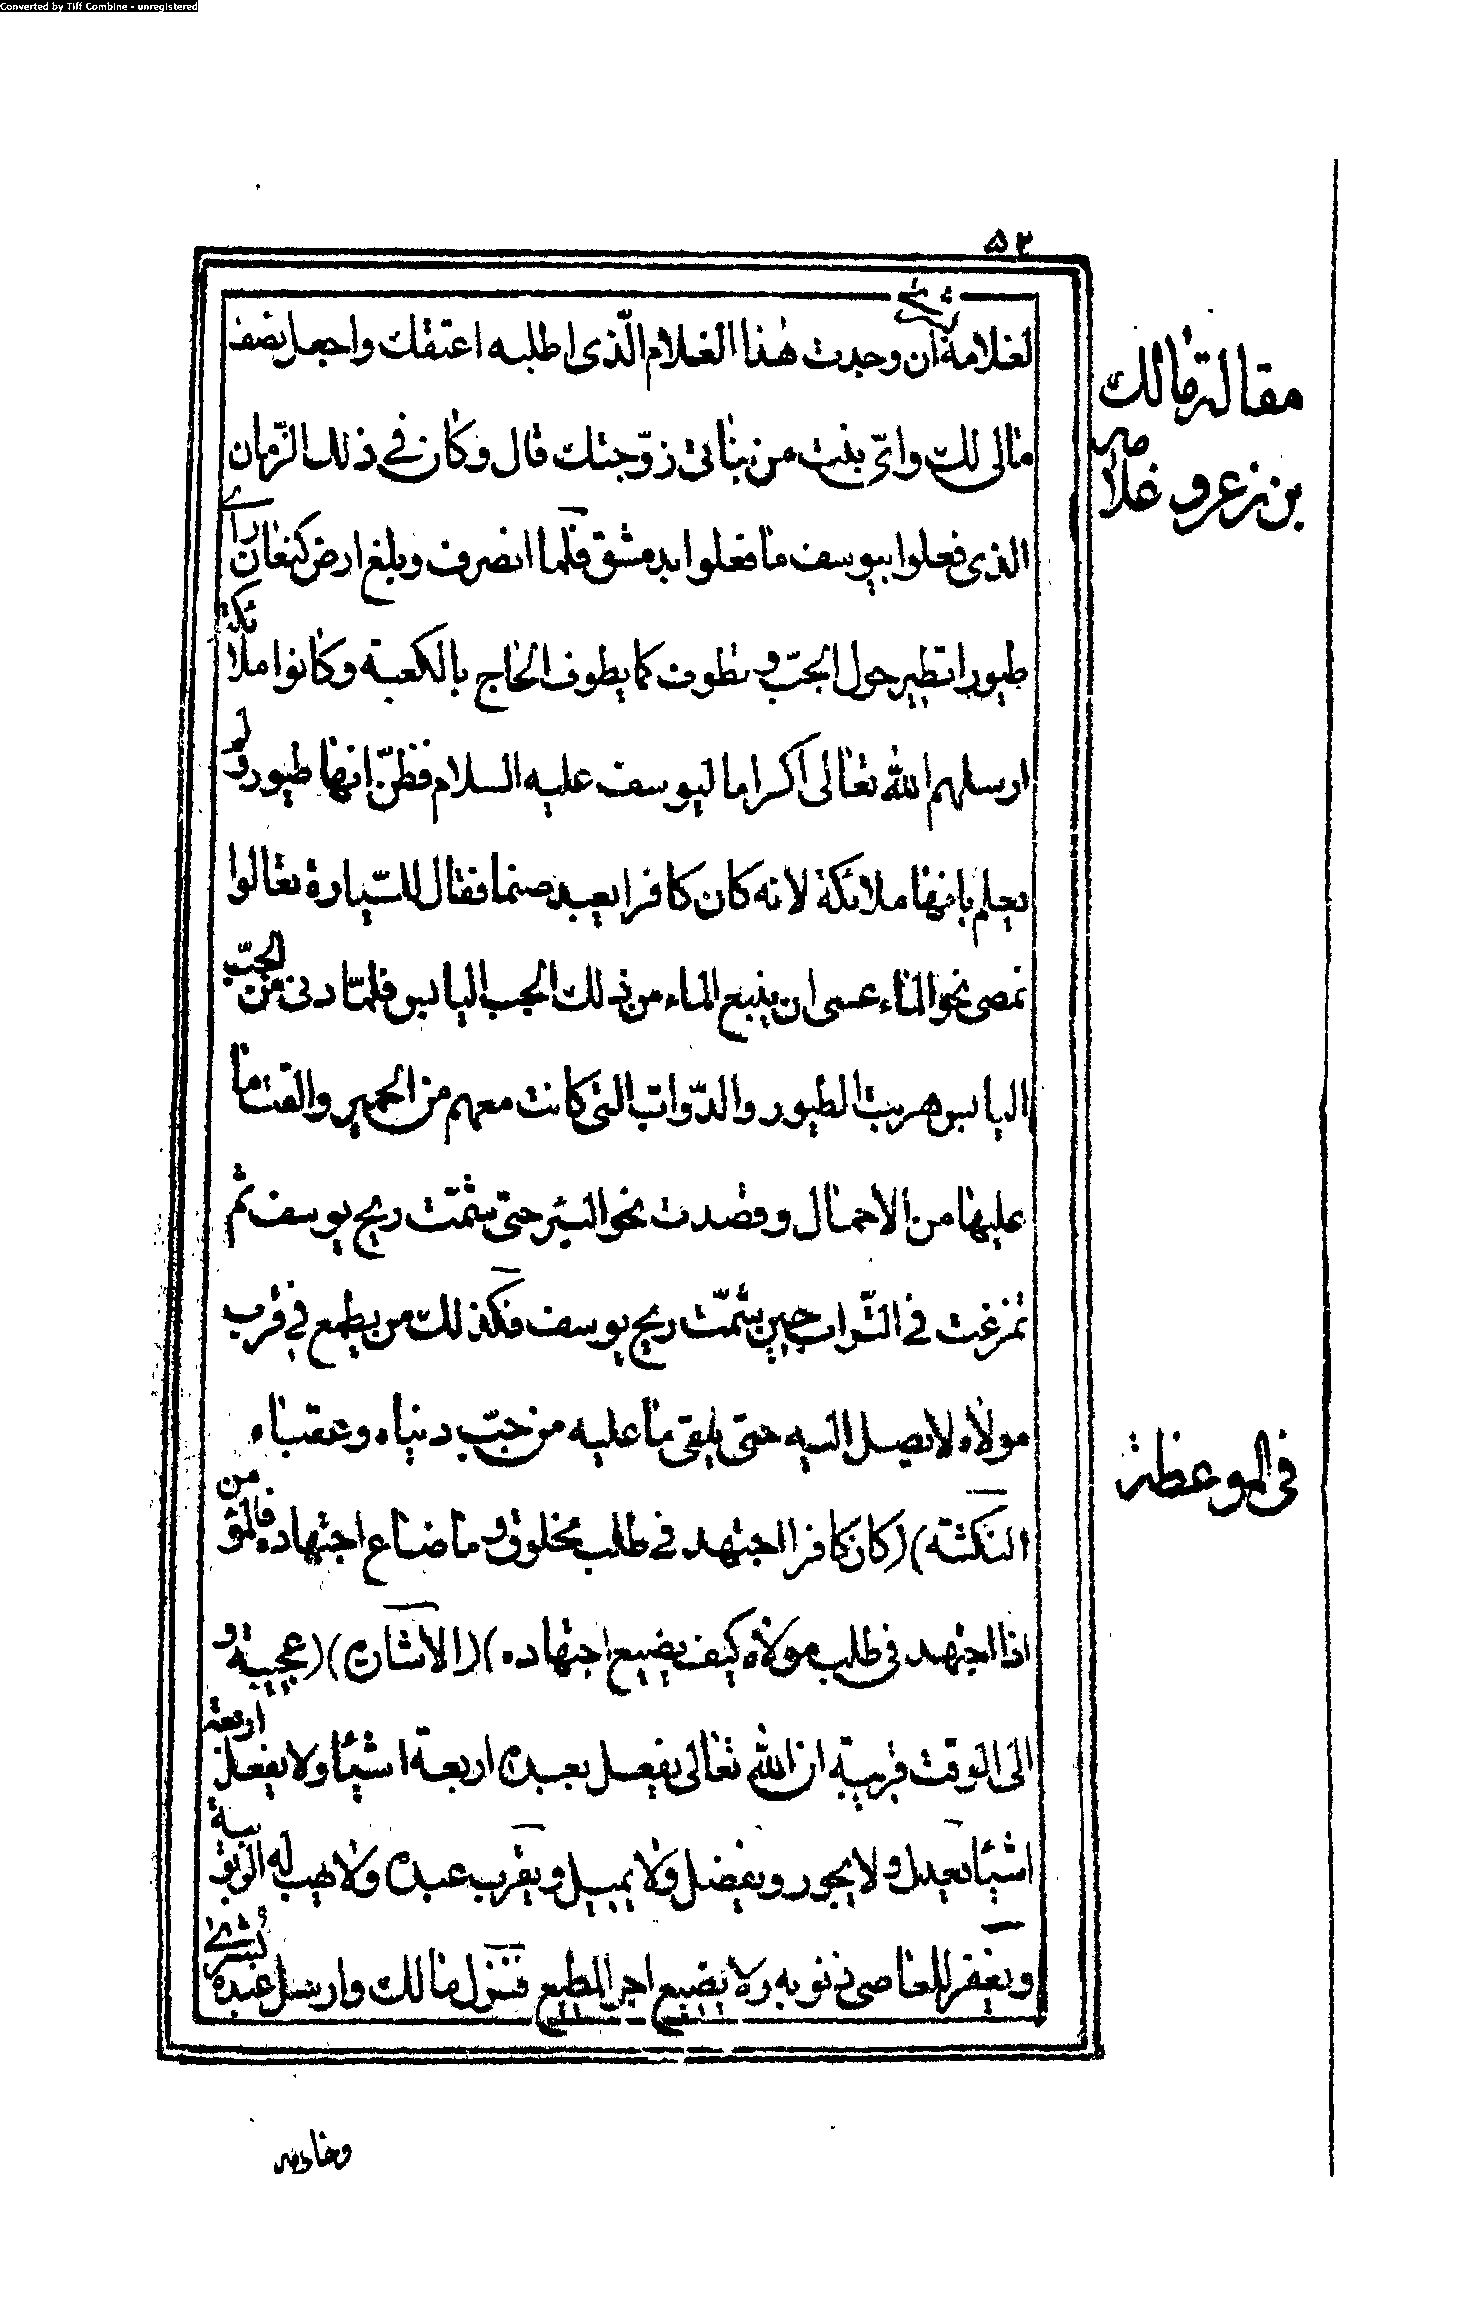 Converted by Tiff Combine - unregistered
٥٣
لغلامه بشرى ان وجدت هذا الغلام الّذى اطلبه اعتقك واجعل نصف
مالى لك واىّ بنت من بناتى زوّجتك قال وكان فى ذلك الزّمان
الذى فعلوا بيوسف ما فعلوا بدمشق فلما انصرف وبلغ ارض كنعان راى
طيورا تطير حول الجبّ وتطوف كما يطوف الحاج بالكعبة وكانوا ملائكة
ارسلهم الله تعالى اكراما ليوسف عليه السلام فظنّ انها طيور ولم
يعلم بانها ملائكة لانه كان كافرا يعبد صنما فقال للسّيارة تعالوا
نمصى نحو الماء عسى ان ينبع الماء من ذلك الجب اليابس فلمّا دنى من الجبّ
اليابس هربت الطيور والدّوابّ التى كانت معهم من الحمير والقت ما
عليها من الاحمال وقصدت نحو البئر حتى شمّت ريح يوسف ثم
تمرغت فى التّراب حين شمّت ريح يوسف فكذلك من يطمع فى قرب
مولاه لا يصل اليه حتى يلقى ما عليه من حبّ دنياه وعقباه
النكتة) (كان كافرا اجتهد فى طلب مخلوق وما ضاع اجتهاده فالمؤمن
اذا اجتهد فى طلب مولاه كيف يضيع اجتهاده) (الاشارة) (عجيبة و
الى الوقت قريبة ان الله تعالى يفعل بعبده اربعة اشيا ولا يفعل اربعة
اشيا يعدل ولا يجور ويفضل ولا يميل ويقرب عبده ولا يهب له الربوبية
ويغفر للعاصى ذنوبه ولا يضيع اجر المطيع فنزل مالك وارسل عبده بشرى
وخادمه
مقالة مالك
بن زعر و غلامه
فى الموعظة